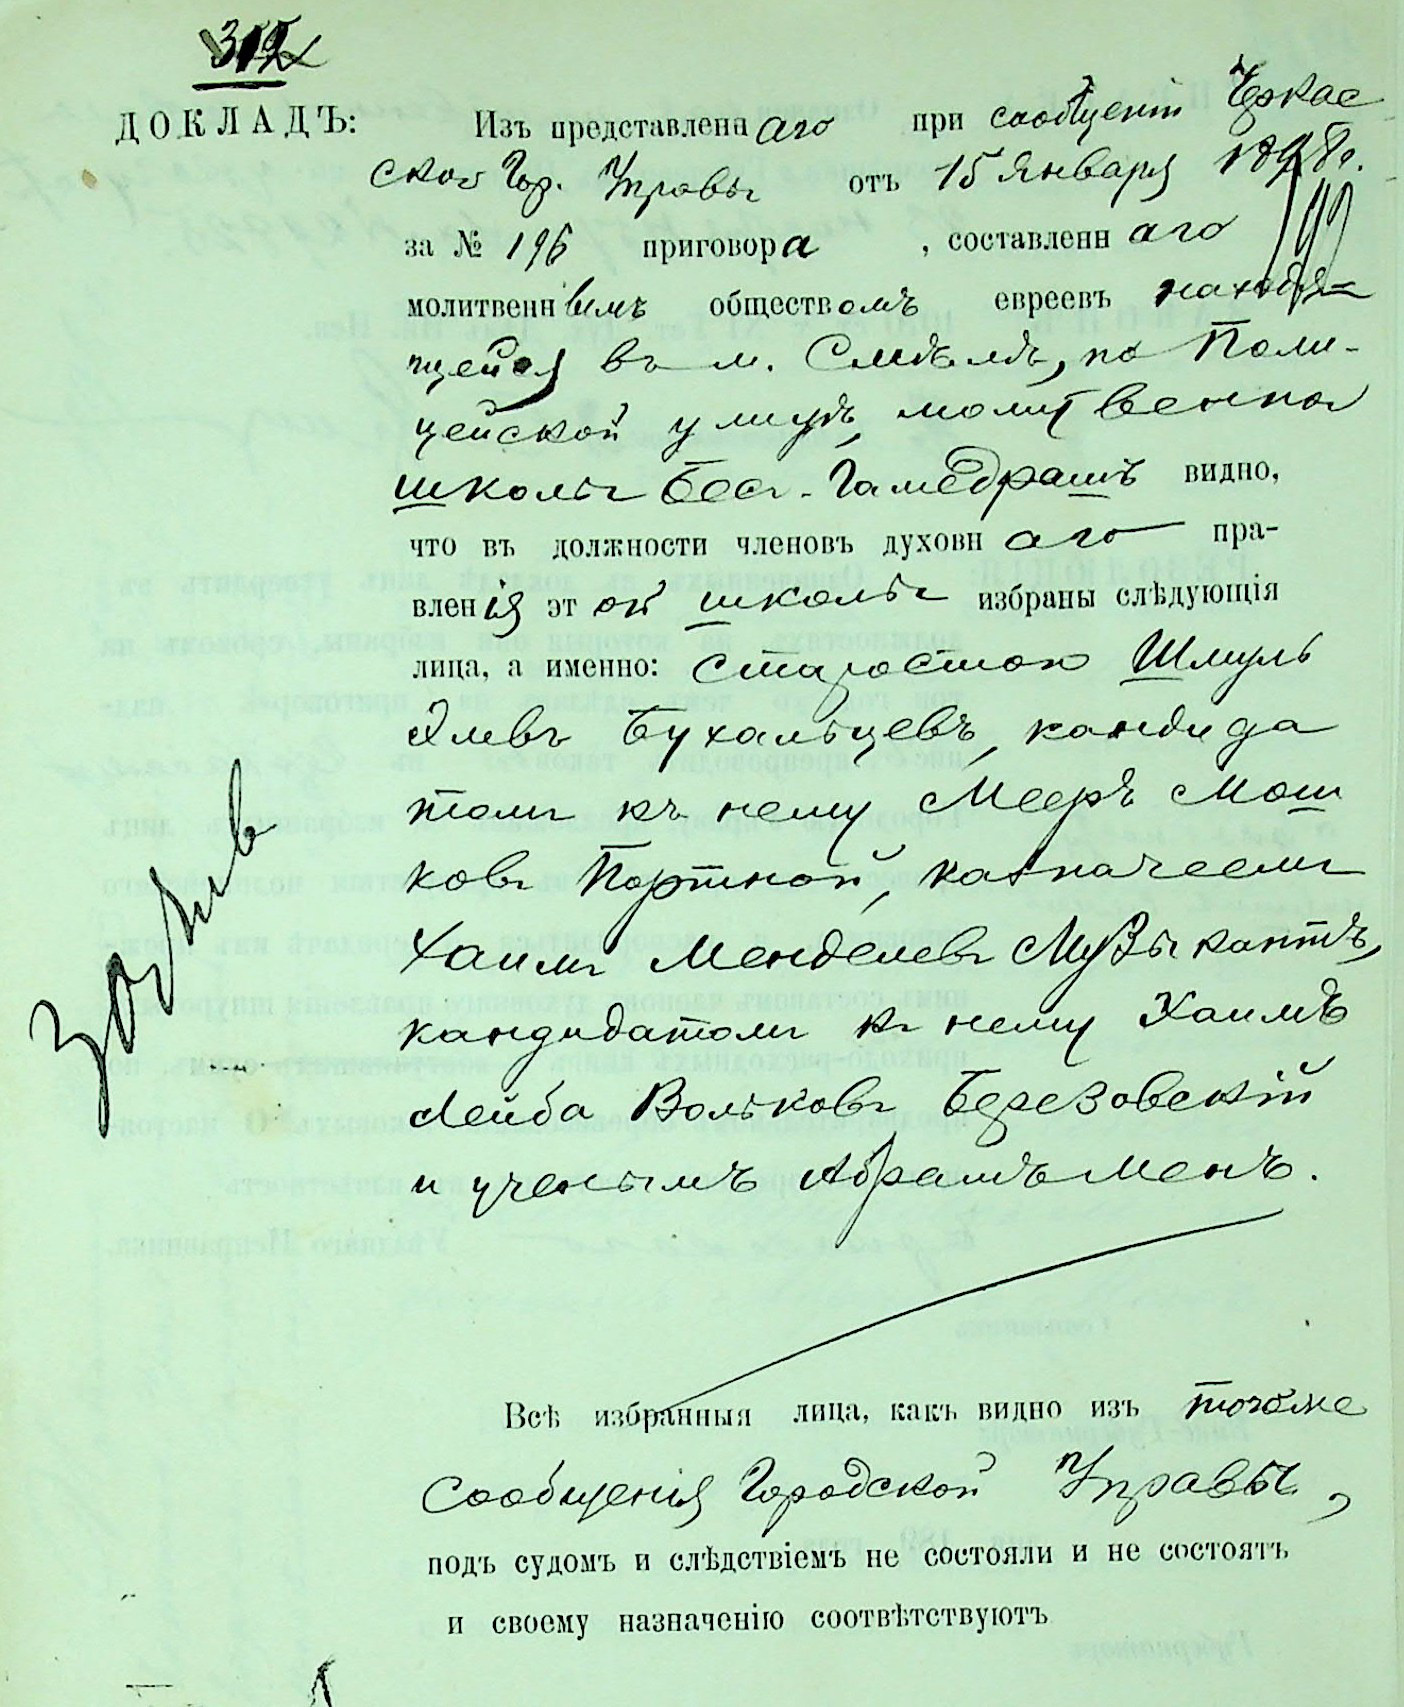 ДОКЛАДЪ:
Изъ представленнаго при сообщеніи Черкас
ской Гор. Управы отъ 15 Января 1898 г.
за № 196 приговора, составленнаго
молитвеннымъ обществомъ евреевъ находя-
щейся въ м. Смѣлѣ, по Поли-
цейской улицѣ, молитвенной
школы Бес-Гамедрашъ видно,
что въ должности членовъ духовнаго пра-
вленія этой школы избраны слѣдующія
лица, а именно: старостою Шмуль
Бухальцевъ, кандида
томъ къ нему Мееръ Мош
ковъ Портной, казначеемъ
Хаимъ Менделевъ Музыкантъ,
кандидатомъ къ нему Хаимъ
Лейба Вольковъ Березовскій
и ученымъ Абрамъ Менъ.
Всѣ избранныя лица, какъ видно изъ того же
сообщенія Городской Управы,
подъ судомъ и слѣдствіемъ не состояли и не состоятъ
и своему назначенію соотвѣтствуютъ